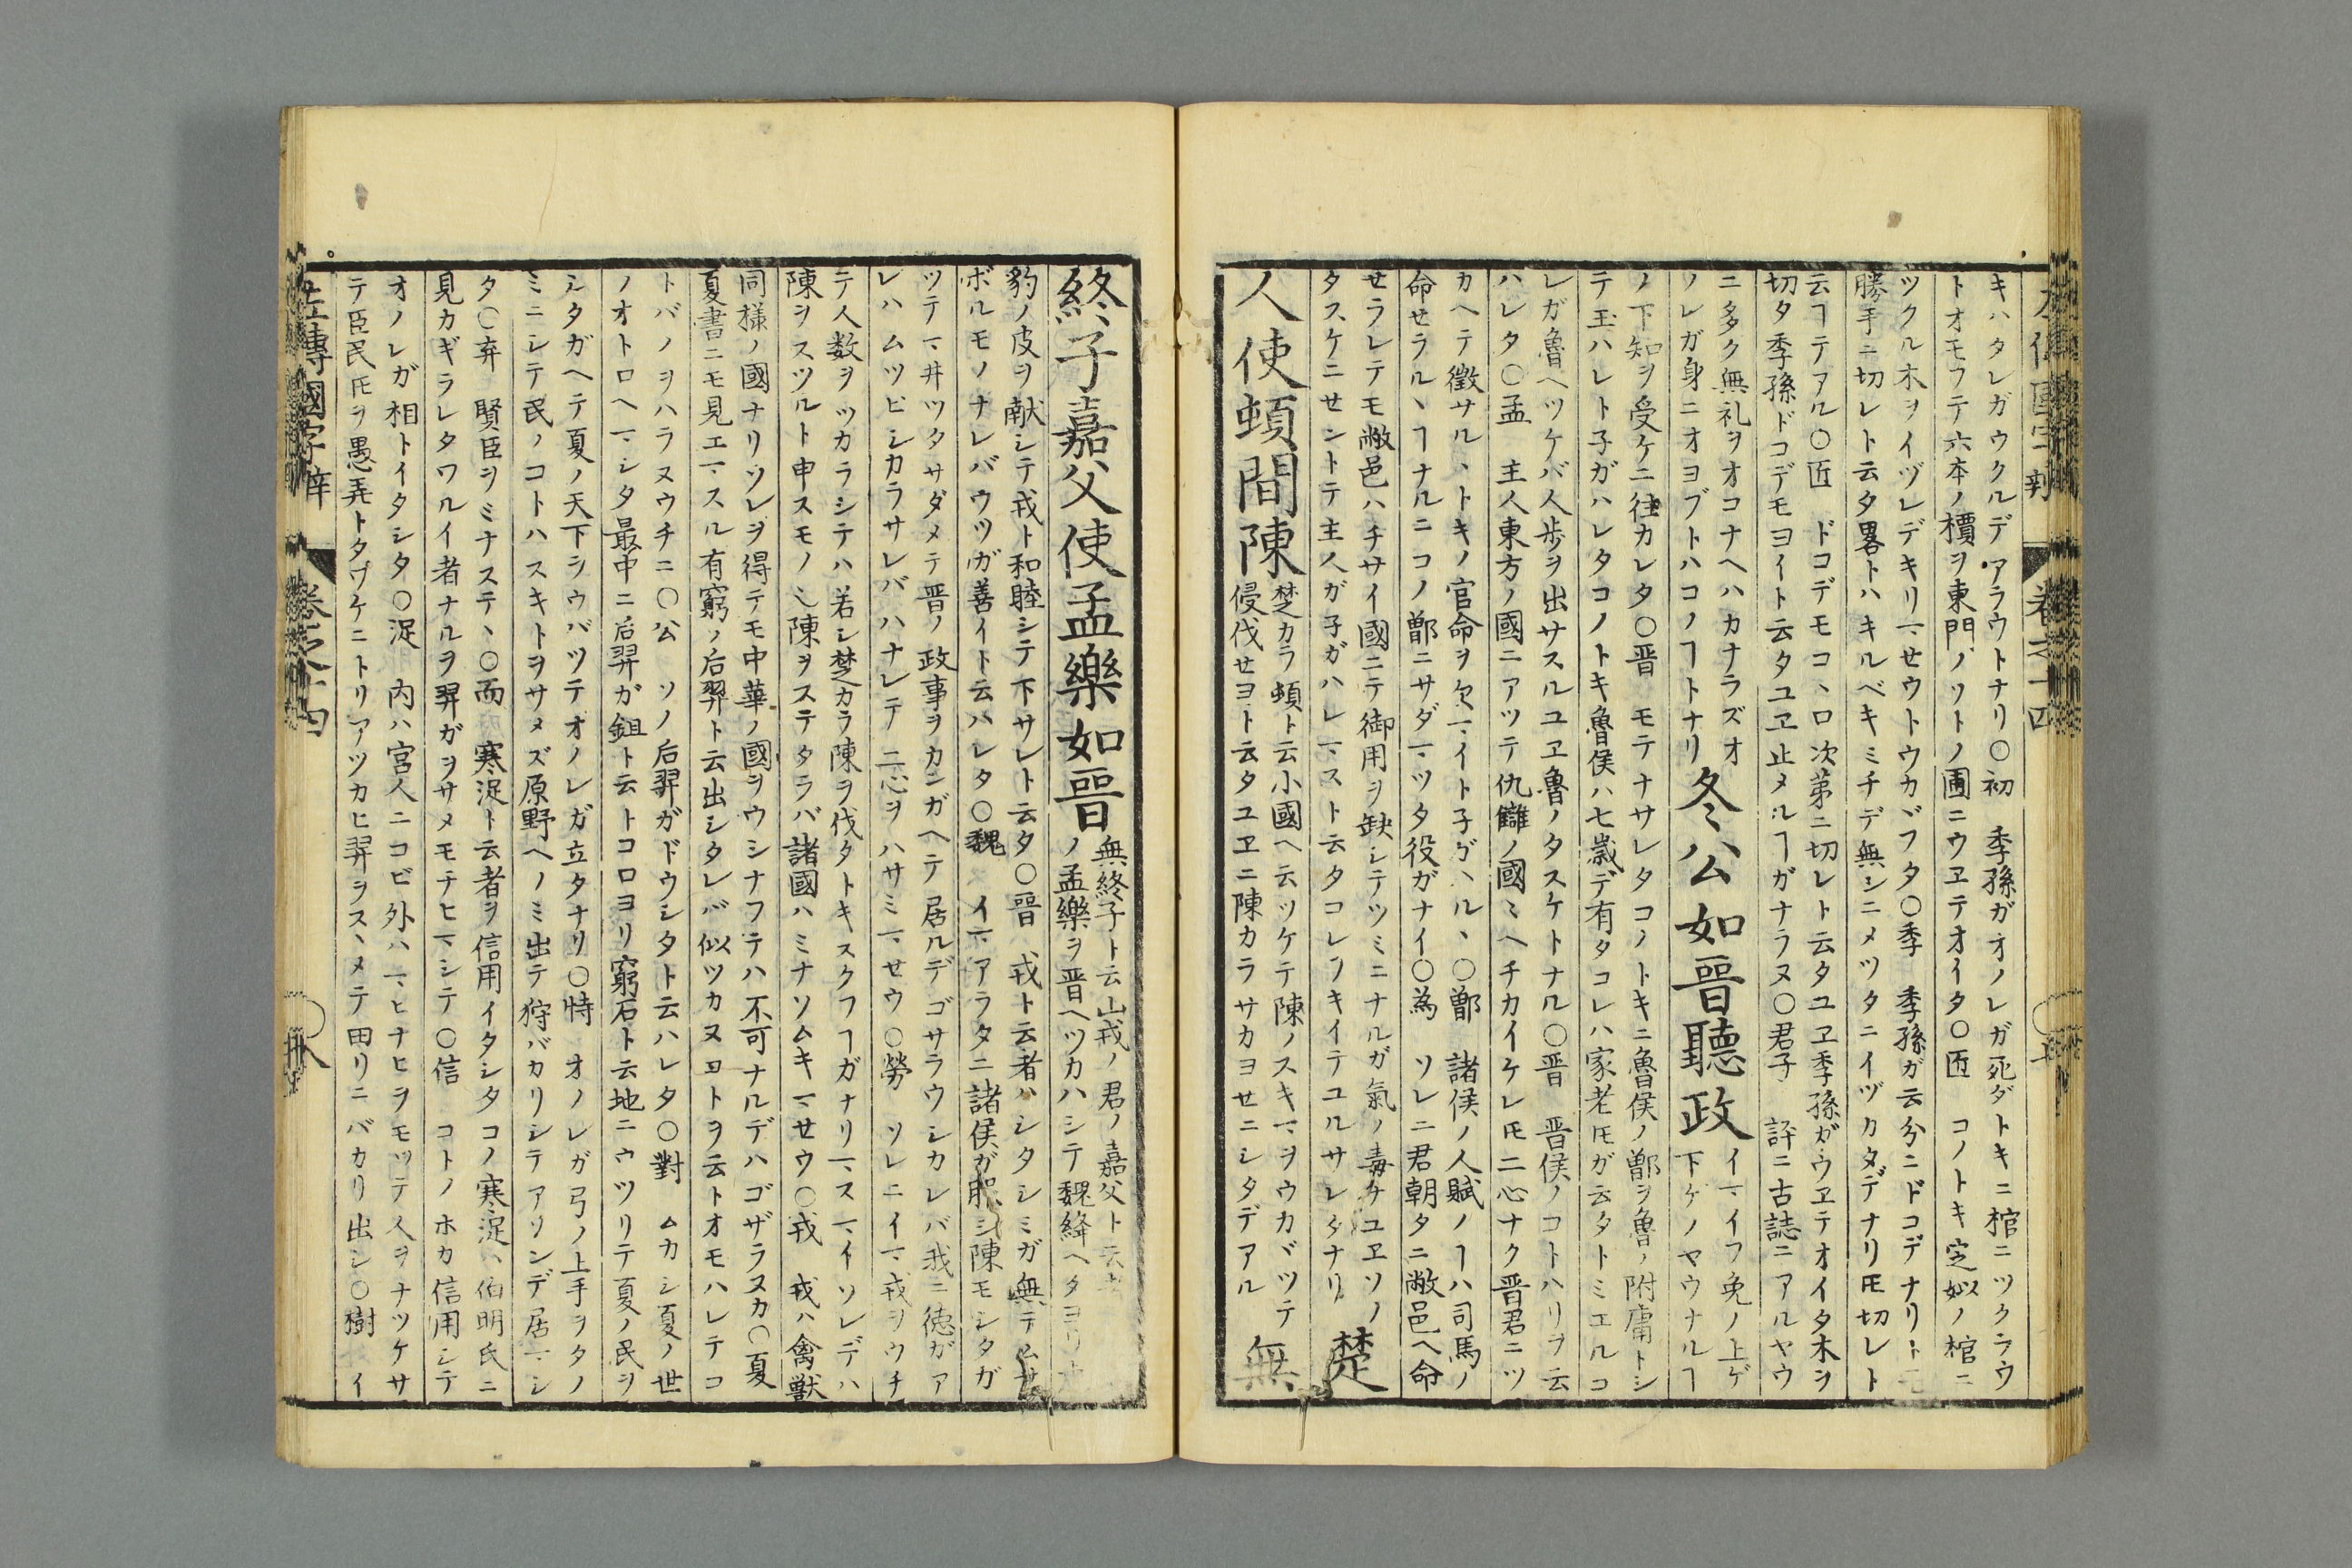 キハタレガウクルデアラウトナリ〇初　季孫ガオノレガ死ダトキニ棺ニツクラウ
トオモフテ六本ノ檟ヲ東門ノソトノ圃ニウヱテオイタ〇匠　コノトキ定姒ノ棺ニ
ツクル木ヲイヅレデキリマセウトウカヾフタ〇季　季孫ガ云分ニドコデナリトモ
勝手ニ切レト云タ畧トハキルベキミチデ無シニメツタニイヅカタデナリトモ切レト
云ヿテアル〇匠　ドコデモコヽロ次第ニ切レト云タユヱ季孫ガウヱテオイタ木ヲ
切タ季孫ドコデモヨイト云タユヱ止メルヿガナラヌ〇君子　評ニ古誌ニアルヤウ
ニ多ク無礼ヲオコナヘハカナラズオ
ノレガ身ニオヨブトハコノヿトナリ
冬公如晉聽政
イマイフ免ノ上ゲ
下ゲノヤウナルヿ
ノ下知ヲ受ケニ往カレタ〇晋　モテナサレタコノトキニ魯侯ノ鄫ヲ魯ノ附庸トシ
テ玉ハレト子ガハレタコノトキ魯侯ハ七歳デ有タコレハ家老𪜈ガ云タトミエルコ
レガ魯ヘツケバ人歩ヲ出サスルユヱ魯ノタスケトナル〇晋　晋侯ノコトハリヲ云
ハレタ〇孟　主人東方ノ國ニアツテ仇讎ノ國ミヘチカイケレ𪜈二心ナク晋君ニツ
カヘテ徵サルヽトキノ官命ヲ欠マイト子ガハルヽ〇鄫　諸侯ノ人賦ノヿハ司馬ノ
命セラルヽヿナルニコノ鄫ニサダマツタ役ガナイ〇為　ソレニ君朝タニ敝邑ヘ命
セラレテモ敝邑ハチサイ國ニテ御用ヲ缺シテツミニナルガ氣ノ毒ナユヱソノ
タスケニセントテ主人ガ子ガハレマスト云タコレヲキイテユルサレタナリ
楚
人使頓間陳
楚カラ頓ト云小國ヘ云ツケテ陳ノスキマヲウカヾツテ
侵伐セヨト云タユヱニ陳カラサカヨセニシタデアル
無
終子嘉父使孟樂如晉
無終子ト云山戎ノ君ノ嘉父ト云
ノ孟樂ヲ晋ヘツカハシテ魏絳ヘタヨリ
豹ノ皮ヲ献シテ戎ト和睦シテ下サレト云タ〇晉　戎ト云者ハシタシミガ無テムサ
ボルモノナレバウツガ善イト云ハレタ〇魏　イマアラタニ諸侯ガ服シ陳モシタガ
ツテマ井ツタサダメテ晋ノ政事ヲカンガヘテ居ルデゴサラウシカレバ我ニ徳ガア
レハムツビシカラサレバハナレテ二心ヲハサミマセウ〇勞　ソレニイマ戎ヲウチ
テ人数ヲツカラシテハ若シ楚カラ陳ヲ伐タトキスクフヿガナリマスマイソレデハ
陳ヲスツルト申スモノミ陳ヲステタラバ諸國ハミナソムキマセウ〇戎　戎ハ禽獣
同様ノ國ナリソレヲ得テモ中華ノ國ヲウシナフテハ不可ナルデハゴザラヌカ〇夏
夏書ニモ見エマスル有窮ノ后羿ト云出シタレバ似ツカヌヿトヲ云トオモハレテコ
トバノヲハラヌウチニ〇公　ソノ后羿ガドウシタト云ハレタ〇對　ムカシ夏ノ世
ノオトロヘマシタ最中ニ后羿ガ鉏ト云トコロヨリ窮石ト云地ニウツリテ夏ノ民ヲ
シタガヘテ夏ノ天下ヲウバツテオノレガ立タナリ〇恃　オノレガ弓ノ上手ヲタノ
ミニシテ民ノコトハスキトヲサメズ原野ヘノミ出テ狩バカリシテアソンデ居マシ
タ〇弃　賢臣ヲミナステヽ〇而　寒浞ト云者ヲ信用イタシタコノ寒浞ハ伯明氏ニ
見カギラレタワルイ者ナルヲ羿ガヲサメモチヒマシテ〇信　コトノホカ信用シテ
オノレガ相トイタシタ〇浞　内ハ宮人ニコビ外ハマヒナヒヲモツテ人ヲナツケサ
テ臣民𪜈ヲ愚弄トタワケニトリアツカヒ羿ヲスヽメテ田リニバカリ出シ〇樹　イ
左傳國字辯　卷之十四　〇八